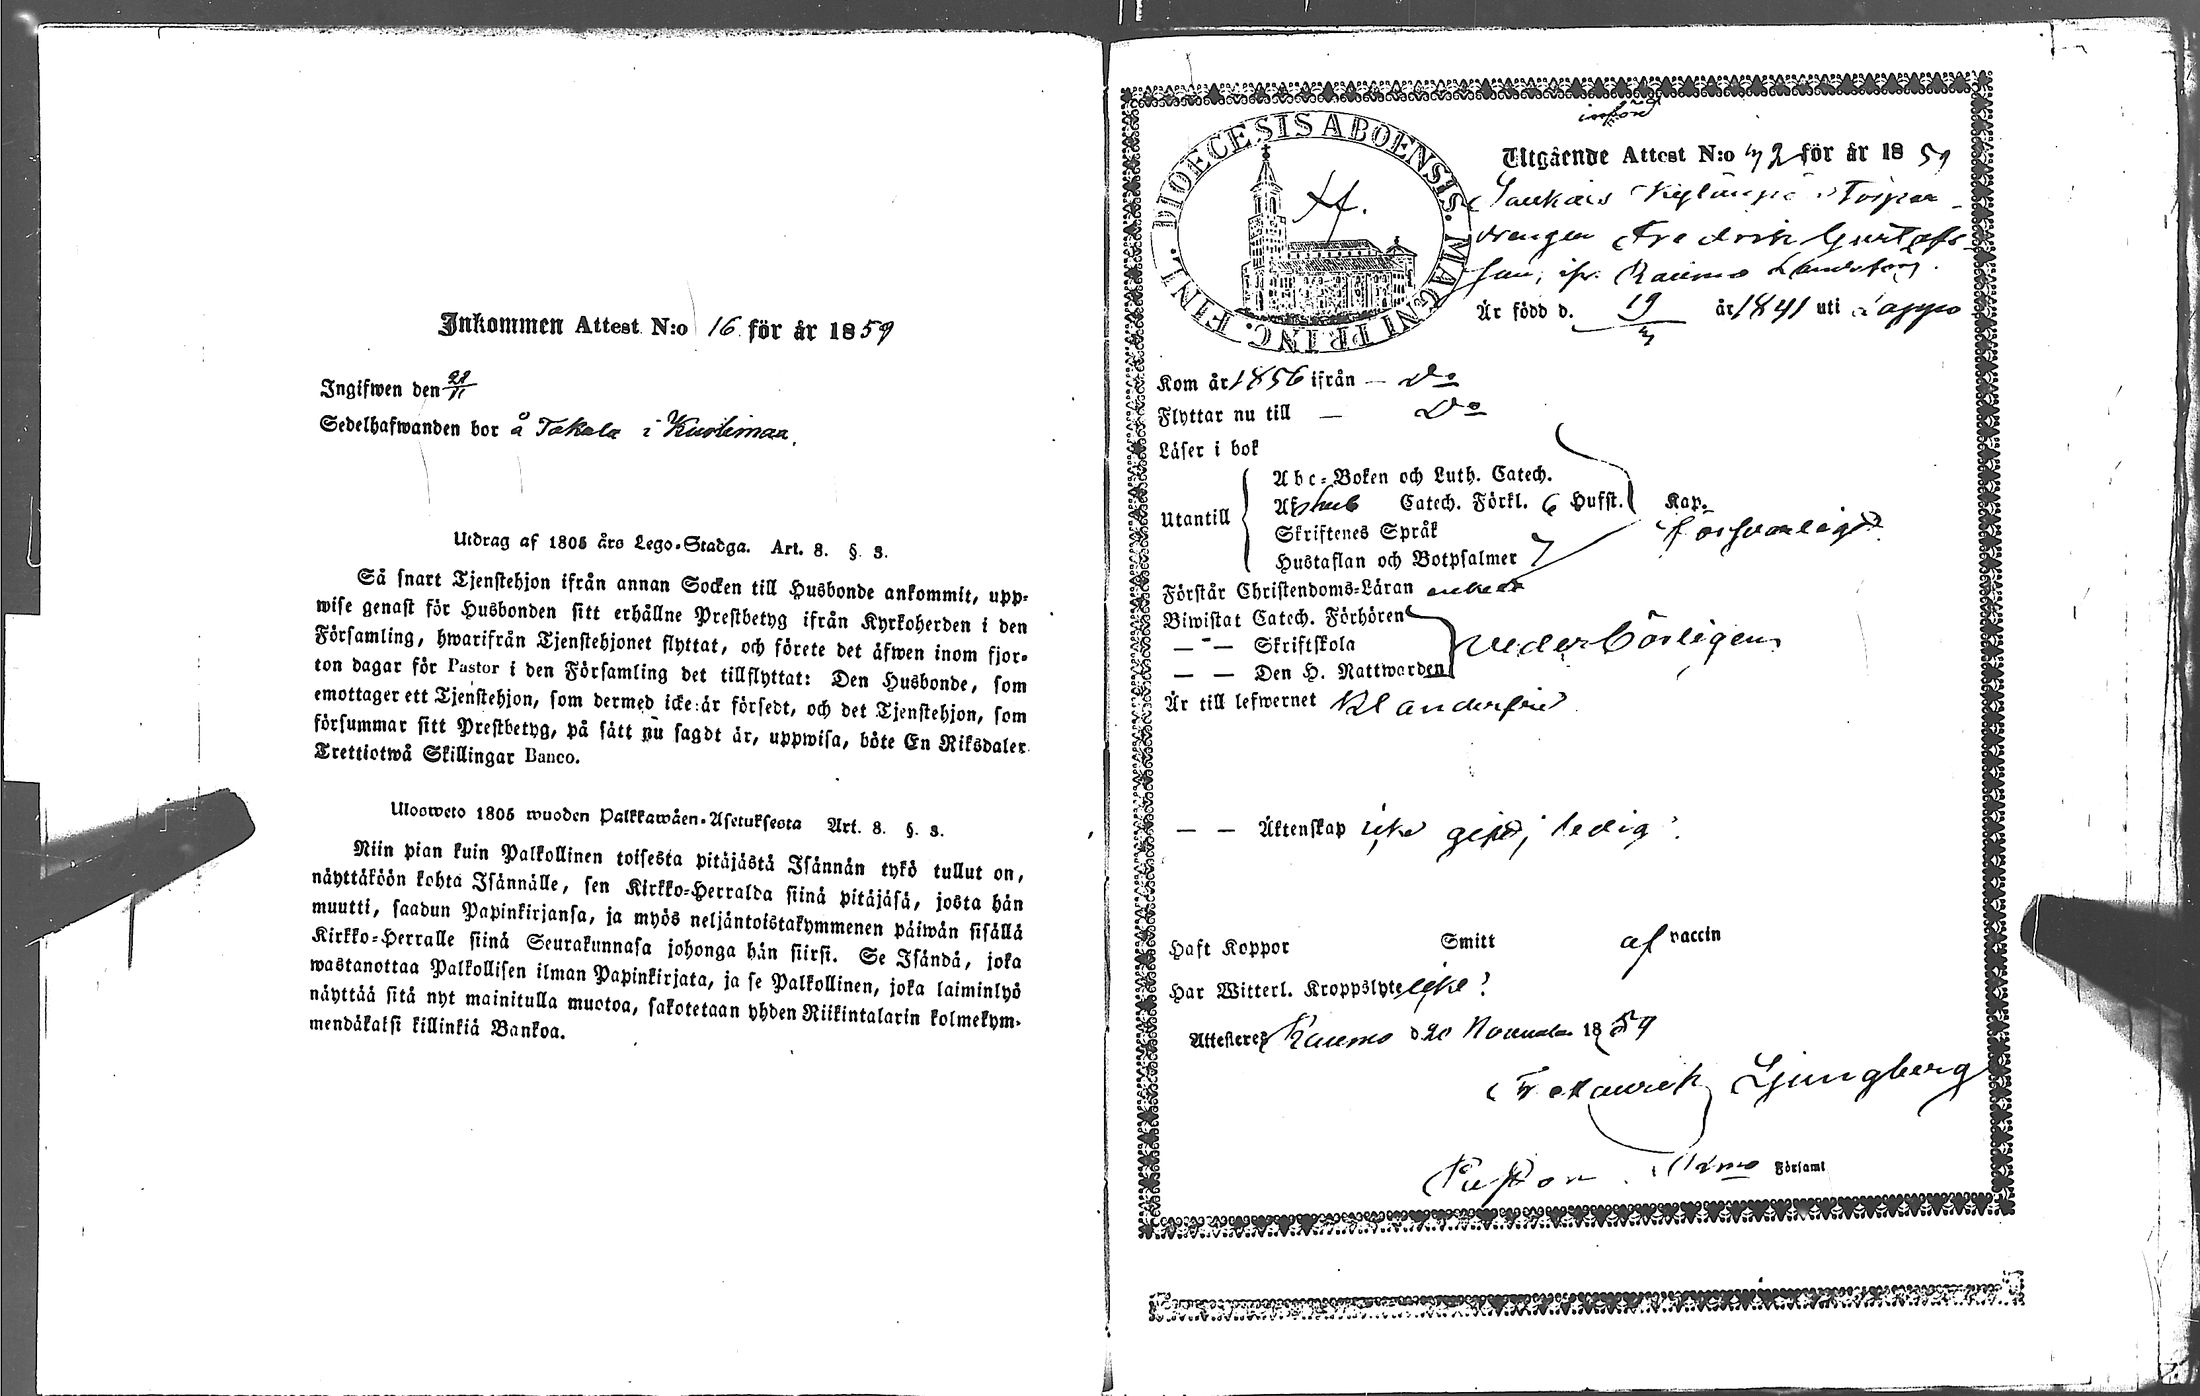 Inkommen Attest N:o 16 för år 1859
Ingifwen den 28/11
Sedelhafwanden bor å Takala i
Utdrag af 1805 års Lego-Stadga. Art. 8. §. 3.
Så snart Tjenstehjon ifrån annan Socken till Husbonde ankommit, upp-
wise genast för Husbonden sitt erhållne Prestbetyg ifrån Kyrkoherden i den
Församling, hwarifrån Tjenstehjonet flyttat, och förete det äfwen inom fjor-
ton dagar för Pastor i den Församling det tillflyttat: Den Husbonde, som
emottager ett Tjenstehjon, som dermed icke är försedt, och det Tjenstehjon, som
försummar sitt Prestbetyg, på sätt nu sagdt är, uppwisa, böte En Riksdaler
Trettiotwå Skillingar Banco.
Ulosweto 1805 wuoden Palkkawäen-Asetuksesta Art. 8. §. 3.
Niin pian kuin Palkollinen toisesta pitäjästä Isännän tykö tullut on,
näyttäköön kohta Isännälle, sen Kirkko-Herralda siinä pitäjäsä, josta hän
muutti, saadun Papinkirjansa, ja myös neljäntoistakymmenen päiwän sisällä
Kirkko-Herralle siinä Seurakunnasa johonga hän siirsi. Se Isändä, joka
wastanottaa Palkollisen ilman Papinkirjata, ja se Palkollinen, joka laiminlyö
näyttää sitä nyt mainitulla muotoa, sakotetaan yhden Riikintalarin kolmekym-
mendäkaksi killinkiä Bankoa.
införd
DIOECESIS ABOENSIS. MAGNI PRINC. FINL.
Utgående Attest N:o 42 för år 1859
drengen Fredrik Gustafs-
son, ifr. Raumo Landsförs.
Är född d. 19 år 1841 uti Lappo
Kom år 1856 ifrån — Do
Flyttar nu till — Do
Läser i bok
Utantill
Abc-Boken och Luth. Catech.
Catech. Förkl. 6 Hufst. Kap.
Skriftenes Språk
försvarligt
Hustaflan och Botpsalmer
Förstår Christendoms-Läran enkelt
Biwistat Catech. Förhören
— " — Skriftskola vederbörligen
— — Den H. Nattwarden
Är till lefwernet klanderfri
— — Äktenskap icke gift, ledig
Haft Koppor Smitt af vaccin
Har Witterl. Kroppslyte icke
Attesteres Raumo d 20 November 1859
Ljungberg
Pastor Församl